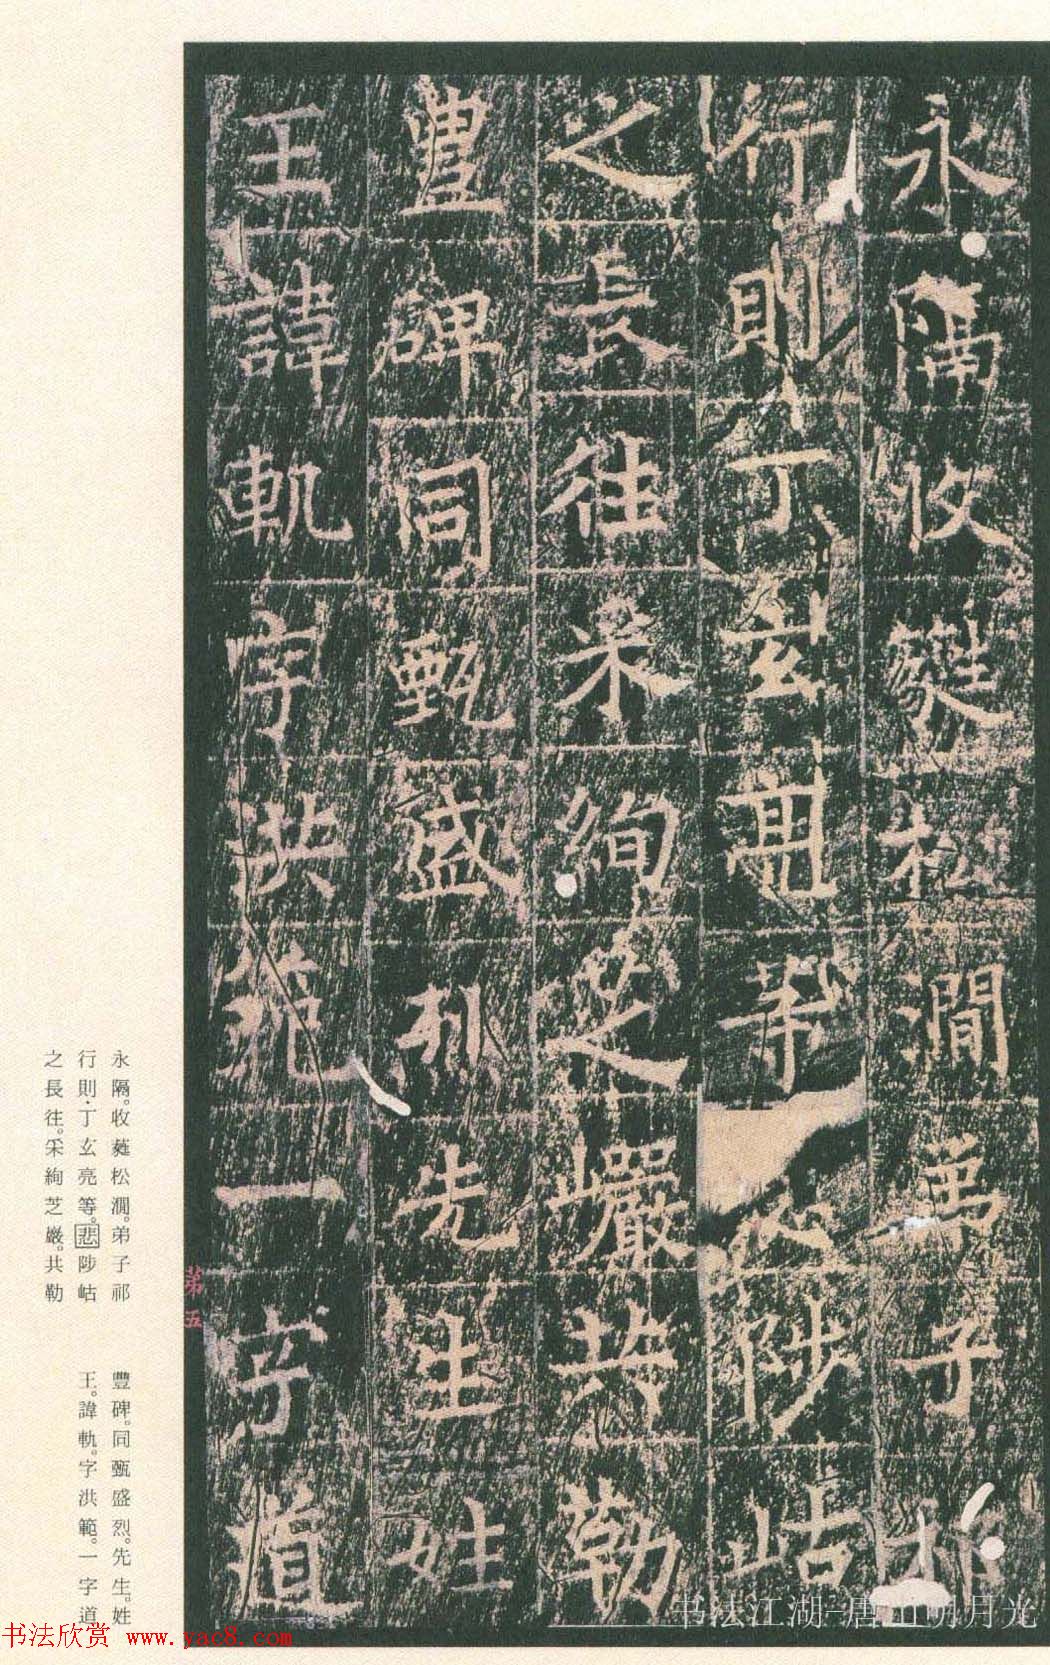 永隔收蕤松澗弟子祁
行則丁玄亮等悲陟岵
之長往采絢芝巖共勒
豐碑同甄盛烈先生姓
王諱軌字洪範一字道
永隔。收蕤松澗。弟子祁
行則·丁玄亮等。悲陟岵
之長往。采絢芝巖。共勒
豐碑。同甄盛烈。先生。姓
王。諱軌。字洪範。一字道。
第五
书法欣赏 www.yac8.com
书法江湖-唐山明月光